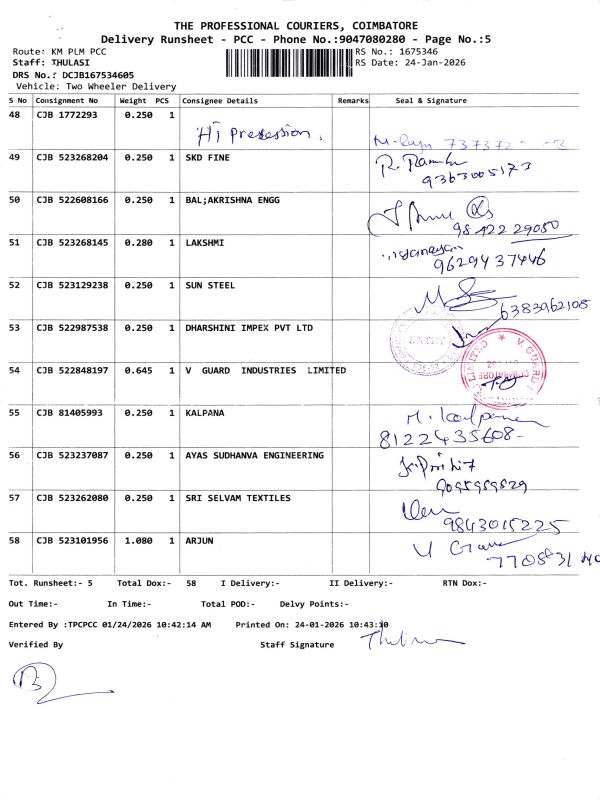 THE PROFESSIONAL COURIERS, COIMBATORE
Delivery Runsheet - PCC - Phone No.:9047080280 - Page No.:5
Route: KM PLM PCC
RS No.: 1675346
Staff: THULASI
RS Date: 24-Jan-2026
DRS No.: DCJB167534605
Vehicle: Two Wheeler Delivery
S No Consignment No Weight PCS Consignee Details Remarks Seal & Signature
48 CJB 1772293 0.250 1
Hi Precession.
49 CJB 523268204 0.250 1 SKD FINE
9363005173
50 CJB 522608166 0.250 1 BAL;AKRISHNA ENGG
9842229050
51 CJB 523268145 0.280 1 LAKSHMI
9629437446
52 CJB 523129238 0.250 1 SUN STEEL
6383962108
53 CJB 522987538 0.250 1 DHARSHINI IMPEX PVT LTD
54 CJB 522848197 0.645 1 V GUARD INDUSTRIES LIMITED
55 CJB 81405993 0.250 1 KALPANA
8122435608-
56 CJB 523237087 0.250 1 AYAS SUDHANVA ENGINEERING
57 CJB 523262080 0.250 1 SRI SELVAM TEXTILES
9843015225
58 CJB 523101956 1.080 1 ARJUN
Tot. Runsheet:- 5 Total Dox:- 58 I Delivery:- II Delivery:- RTN Dox:-
Out Time:- In Time:- Total POD:- Delvy Points:-
Entered By :TPCPCC 01/24/2026 10:42:14 AM Printed On: 24-01-2026 10:43:10
Verified By Staff Signature